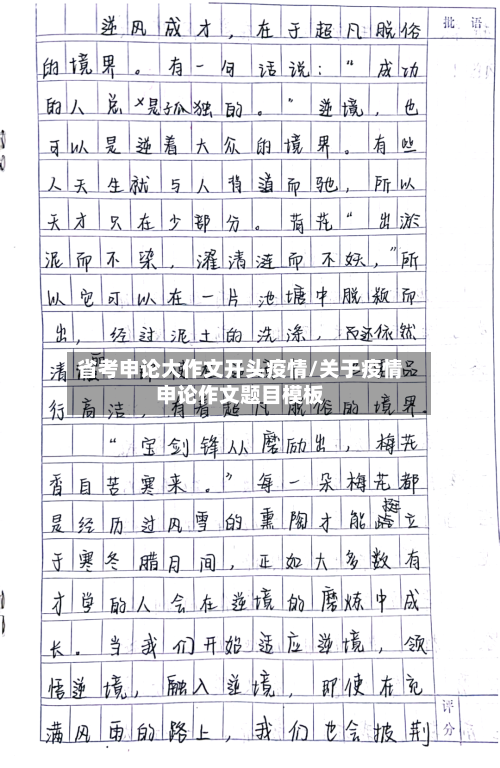 批语
逆风成才，在于超凡脱俗
的境界。有一句话说：“成功
的人总是孤独的。”逆境，也
可以是逆着大众的境界。有些
人天生就与人背道而驰，所以
天才只在少部分。荷花“出淤
泥而不染，濯清涟而不妖，”所
以它可以在一片池塘中脱颖而
出，经过泥土的洗涤，而还依然
清
品
省考申论大作文开头疫情/关于疫情
申论作文题目模板
行高洁，有着超凡脱俗的境界.
“宝剑锋从磨励出，梅花
香自苦寒来。”每一朵梅花都
是经历过风雪的熏陶才能挺立
于寒冬腊月间，正如大多数有
才学的人会在逆境的磨炼中成
长。当我们开始适应逆境，领
悟逆境，融入逆境，即使在充
满风雨的路上，我们也会披荆
评分